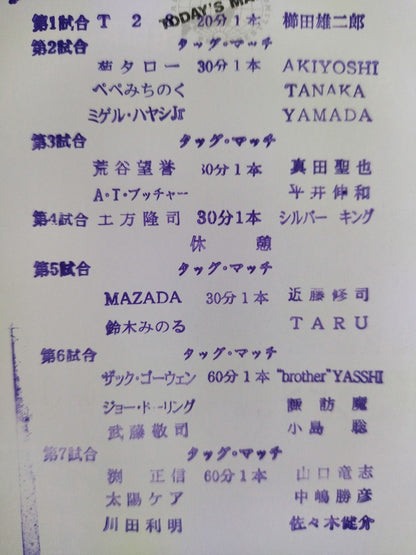 TODAY'S MA
第1試合 T2 20分1本 櫛田雄二郎
第2試合 タッグ・マッチ
菊タロー 30分1本 AKIYOSHI
ペペみちのく TANAKA
ミゲル・ハヤシJr YAMADA
第3試合 タッグ・マッチ
荒谷望誉 30分1本 真田聖也
A・T・ブッチャー 平井伸和
第4試合 土方隆司 30分1本 シルバー キング
休憩
第5試合 タッグ・マッチ
MAZADA 30分1本 近藤修司
鈴木みのる TARU
第6試合 タッグ・マッチ
ザック・ゴーウェン 60分1本 "brother"YASSHI
ジョー・ドーリング 諏訪魔
武藤敬司 小島聡
第7試合 タッグ・マッチ
渕正信 60分1本 山口竜志
太陽ケア 中嶋勝彦
川田利明 佐々木健介